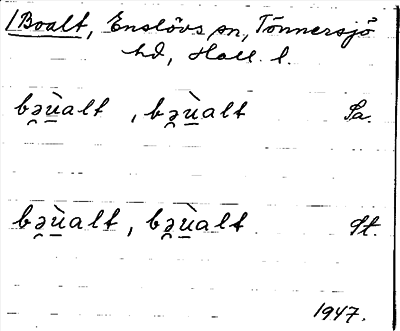 /Boalt, Enslövs sn, Tönnersjö
hd, Hall. l.
bə̯ùalt , bə̯ùalt Sa.
bə̯ùalt, bə̯ùalt St.
1947.